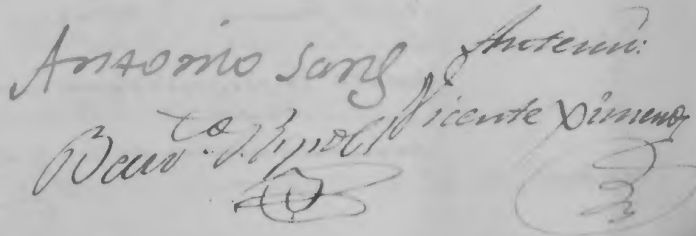 Antonio Sanz
Ante mi:
Bauta. Ripoll
Vicente Ximenez